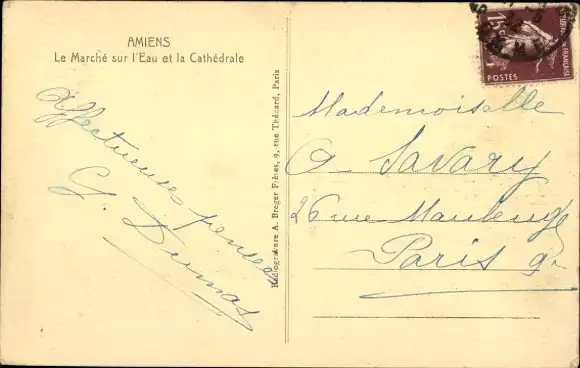 AMIENS
Le Marché sur l'Eau et la Cathédrale
Affectueuses pensées
G. Dumas
Radiogravure A. Breger Frères, 9, rue Thénard, Paris
15c
POSTES
Mademoiselle
Savary
26 rue Maubeuge
Paris 9e